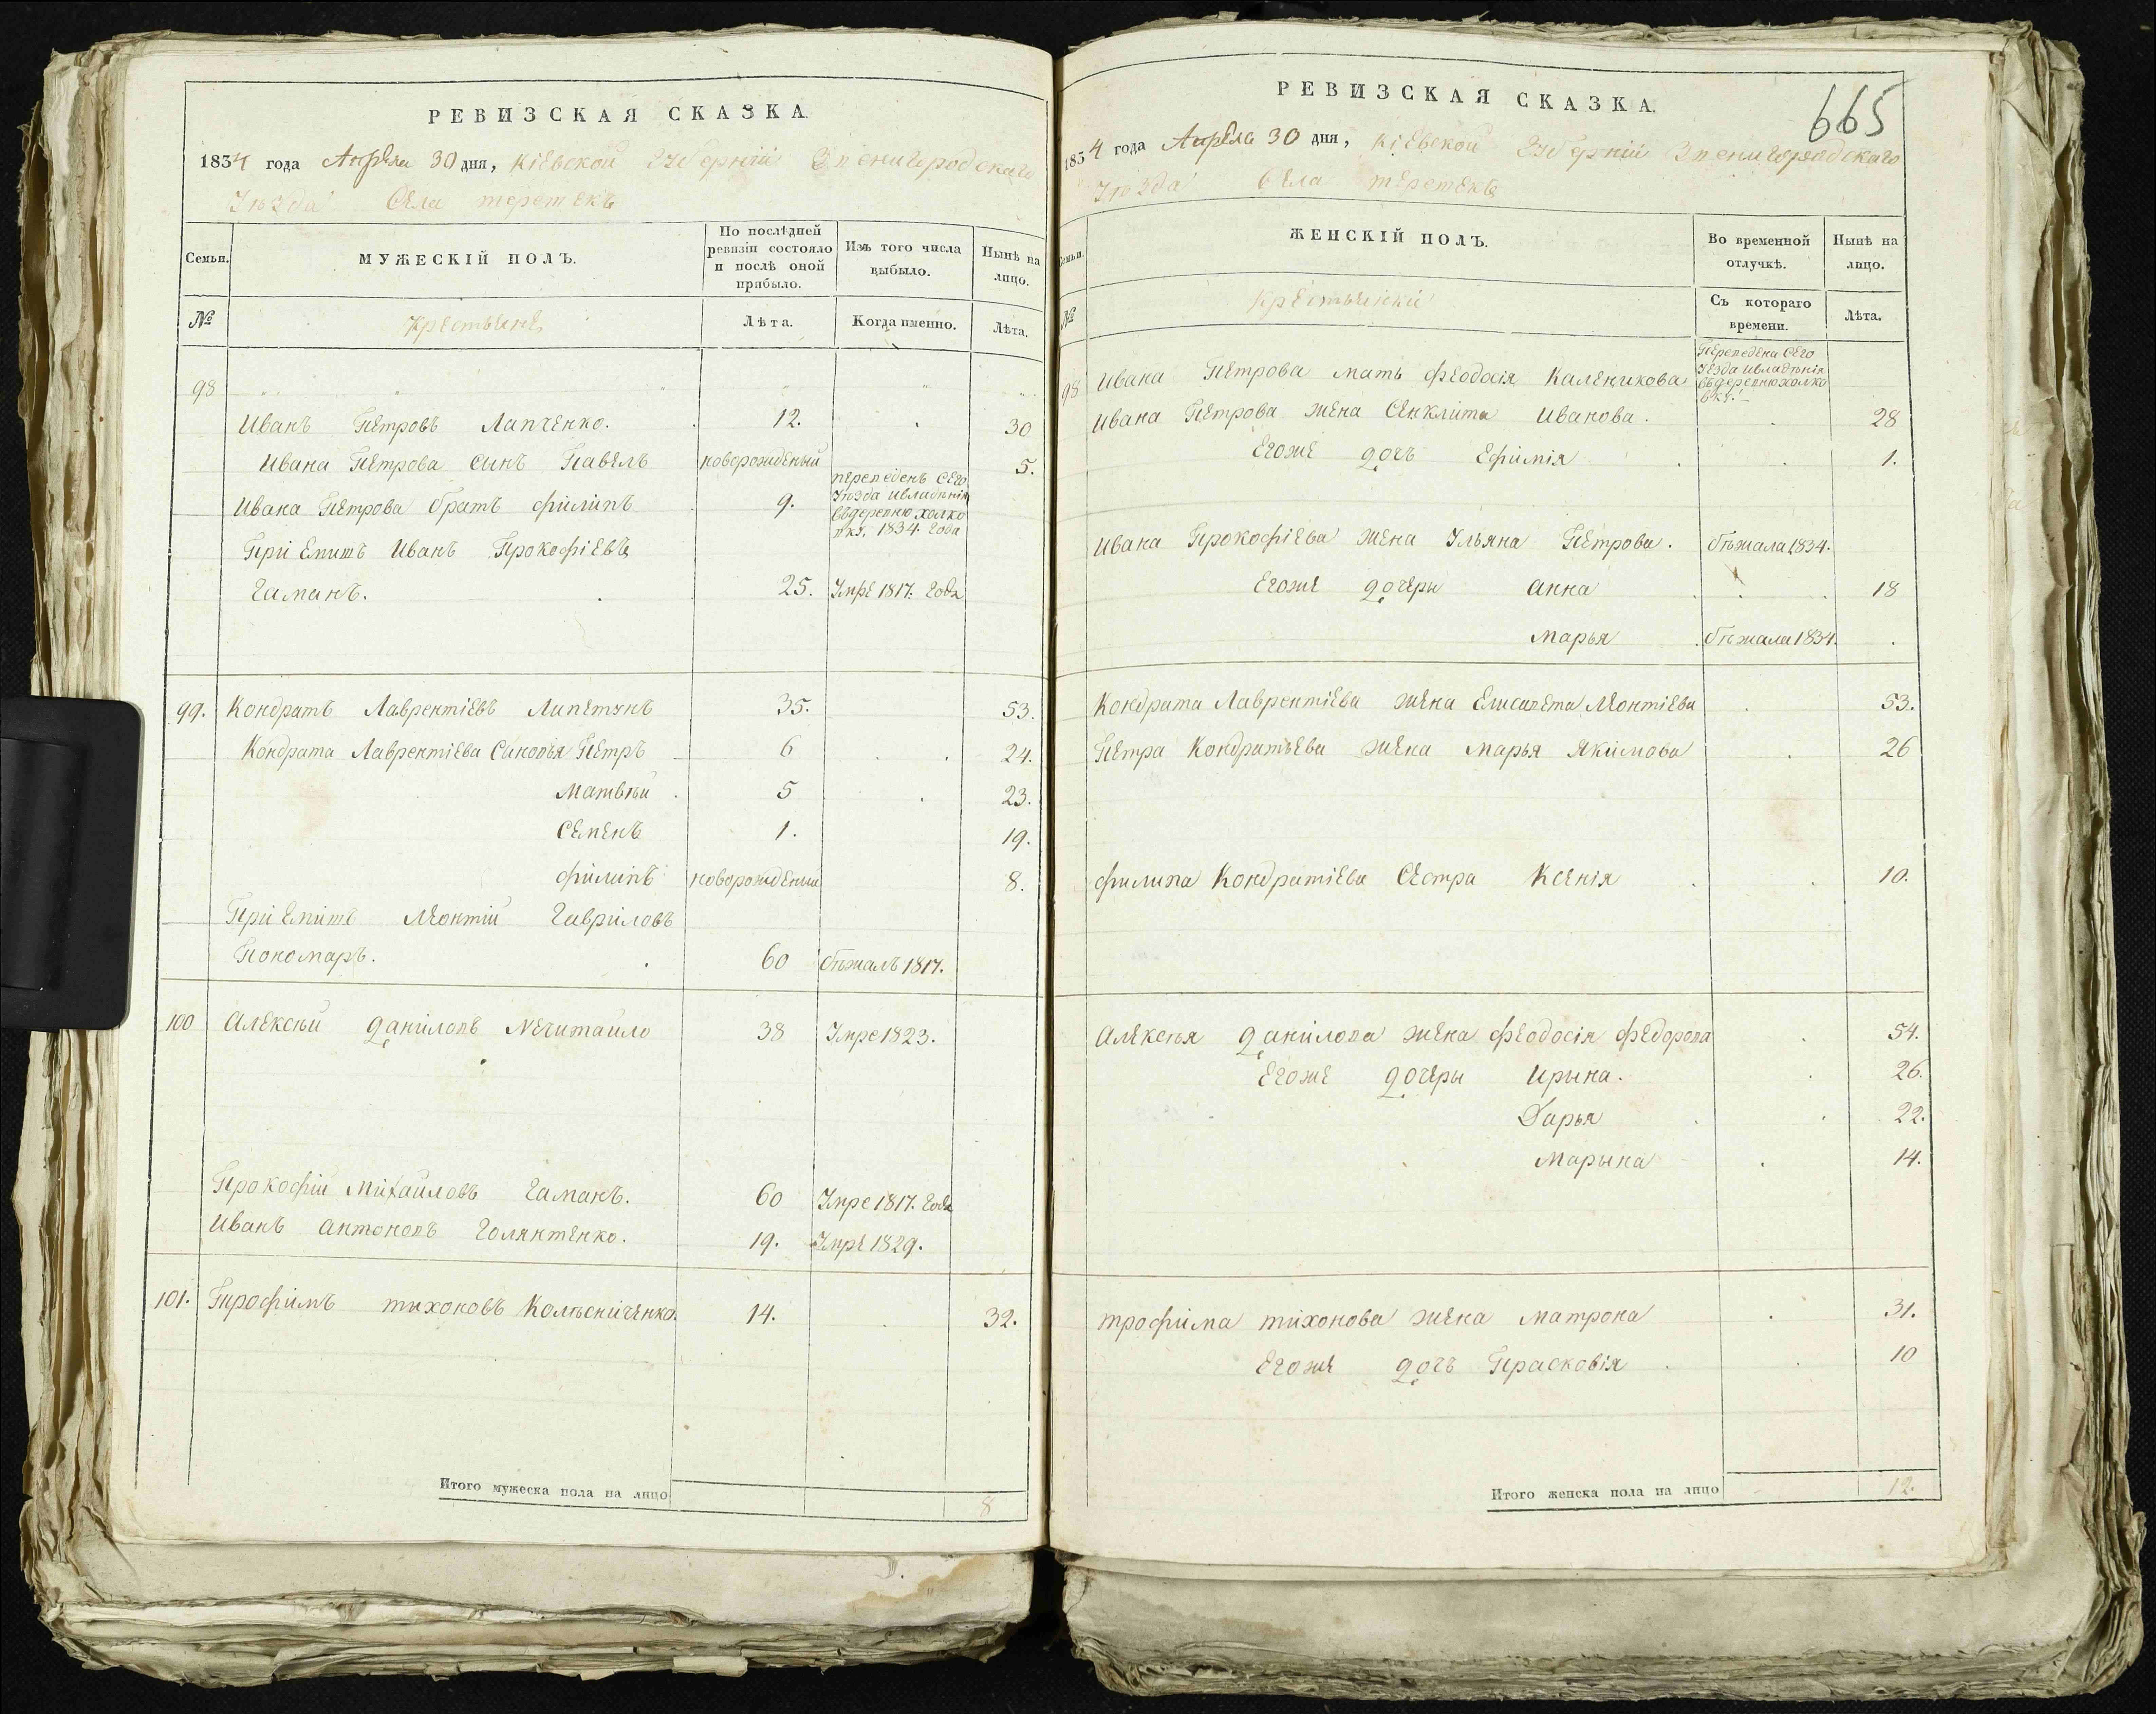 РЕВИЗСКАЯ СКАЗКА.
1834 года Апреля 30 дня, Кіевской Губерніи Звенигородскаго
Уѣзда Села терешекъ
Семьи.
МУЖЕСКІЙ ПОЛЪ.
По послѣдней ревизіи состояло и послѣ оной прибыло.
Изъ того числа выбыло.
Нынѣ на лицо.
№
Крестьяне
Лѣта.
Когда именно.
Лѣта.
98
Иванъ Петровъ Лапченко. 12. 30
Ивана Петрова синъ Павелъ новорожденый 5.
Ивана Петрова братъ филипъ 9. переведенъ сего Уѣзда ивладѣнія въдеревню холковку, 1834 года
Пріемишъ Иванъ Прокофіевъ
Гаманъ. 25. Умре 1817. года
99. Кондратъ Лаврентіевъ Липетунъ 35. 53.
Кондрата Лаврентіева Синовья Петръ 6 24.
Матвѣй 5 23.
Семенъ 1. 19.
филипъ новорожденый 8.
Пріемишъ Леонтій Гавриловъ
Пономаръ. 60 бѣжалъ 1817.
100 Алексѣй Даниловъ Нечитайло 38 Умре 1823.
Прокофій Михайловъ Гаманъ. 60 Умре 1817. года
Иванъ Антоновъ Голяктенко. 19. Умре 1829.
101. Трофимъ тихоновъ Колѣсниченко. 14. 32.
Итого мужеска пола на лицо 8
665
РЕВИЗСКАЯ СКАЗКА.
1834 года Апреля 30 дня, Кіевской Губерніи Звенигородскаго
Уѣзда Села терешекъ
Семьи.
ЖЕНСКІЙ ПОЛЪ.
Во временной отлучкѣ.
Нынѣ на лицо.
№
Крестьянки
Съ котораго времени.
Лѣта.
98 Ивана Петрова мать феодосія Каленикова Переведена Сего Уезда ивладѣнія въдеревню холковку.
Ивана Петрова жена Сенклита Иванова. 28
Егоже дочъ Ефимія 1.
Ивана Прокофіева жена Ульяна Петрова. бѣжала 1834.
Егоже дочеры Анна 18
Марья бѣжала 1834.
Кондрата Лаврентіева жена Елисавета Леонтіева 53.
Петра Кондратьева жена Марья Якимова 26
филипа Кондратіева Сестра Ксенія 10.
Алексѣя Данилова жена феодосія федорова 54.
Егоже дочеры Ирына. 26.
Дарья 22.
Марына 14.
трофима тихонова жена Матрона 31.
Егоже дочъ Прасковія 10
Итого женска пола на лицо 12.